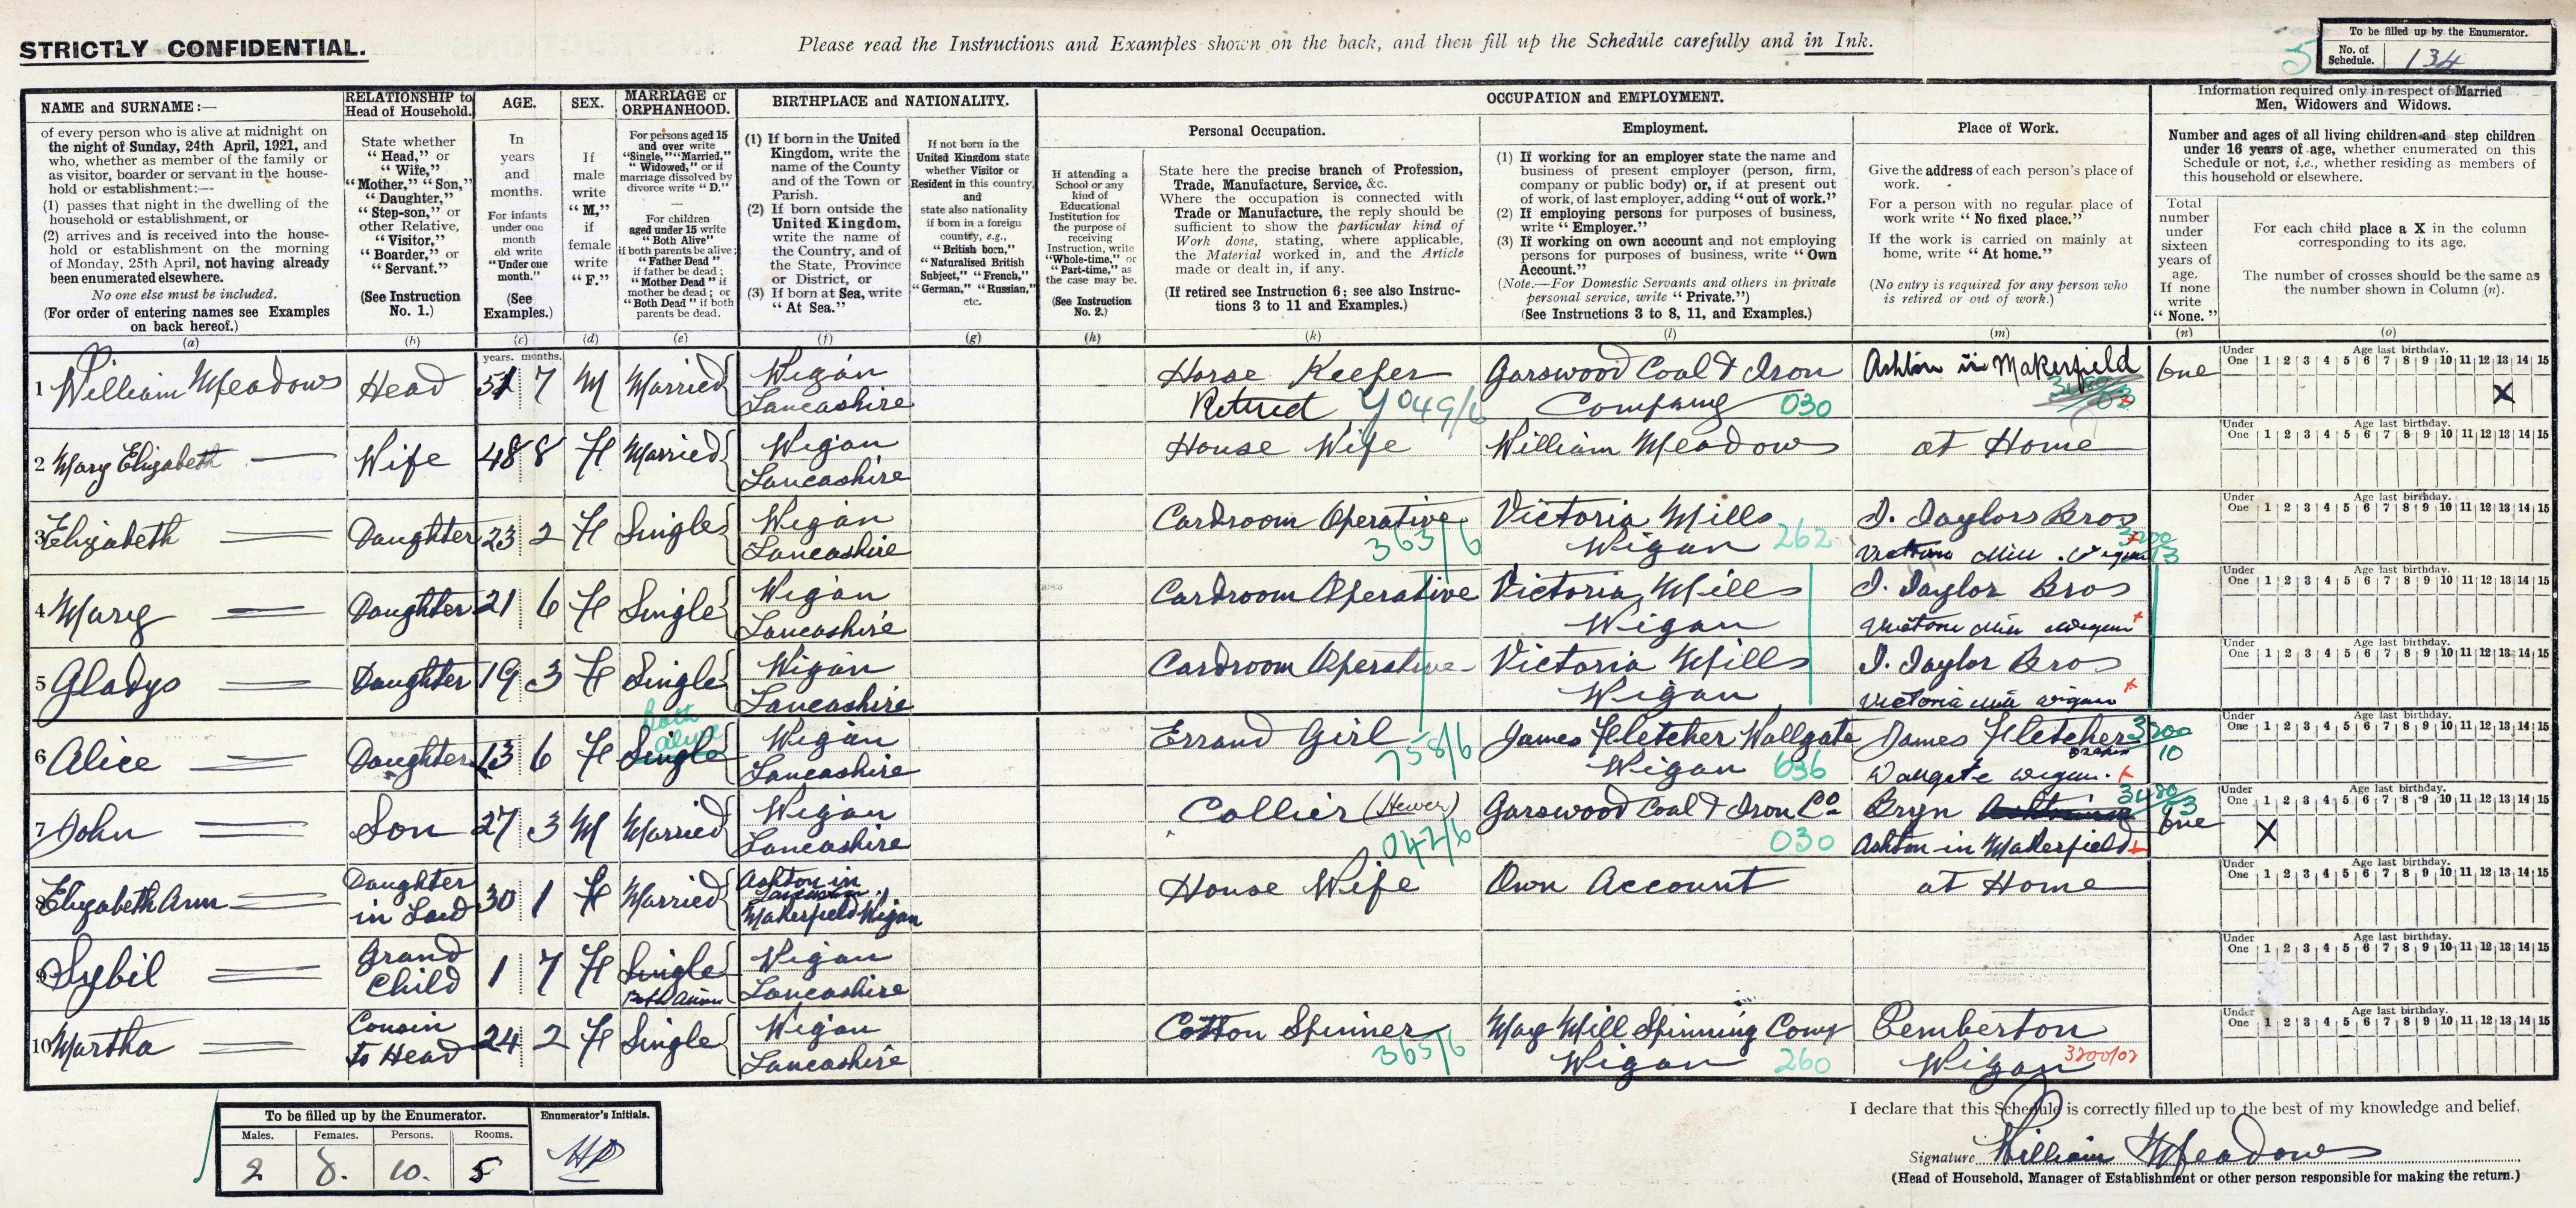 STRICTLY CONFIDENTIAL.
Please read the Instructions and Examples shown on the back, and then fill up the Schedule carefully and in Ink.
5
To be filled up by the Enumerator.
No. of Schedule. 134
NAME and SURNAME:—
of every person who is alive at midnight on
the night of Sunday, 24th April, 1921, and
who, whether as member of the family or
as visitor, boarder or servant in the house-
hold or establishment:—
(1) passes that night in the dwelling of the
household or establishment, or
(2) arrives and is received into the house-
hold or establishment on the morning
of Monday, 25th April, not having already
been enumerated elsewhere.
No one else must be included.
(For order of entering names see Examples
on back hereof.)
(a)
RELATIONSHIP to
Head of Household.
State whether
"Head," or
"Wife,"
"Mother," "Son,"
"Daughter,"
"Step-son," or
other Relative,
"Visitor,"
"Boarder," or
"Servant."
(See Instruction
No. 1.)
(b)
AGE.
In
years
and
months.
For infants
under one
month
old write
"Under one
month."
(See
Examples.)
(c)
SEX.
If
male
write
"M,"
if
female
write
"F."
(d)
MARRIAGE or
ORPHANHOOD.
For persons aged 15
and over write
"Single," "Married,"
"Widowed," or if
marriage dissolved by
divorce write "D."
For children
aged under 15 write
"Both Alive"
if both parents be alive;
"Father Dead"
if father be dead;
"Mother Dead" if
mother be dead; or
"Both Dead" if both
parents be dead.
(e)
BIRTHPLACE and NATIONALITY.
(1) If born in the United
Kingdom, write the
name of the County
and of the Town or
Parish.
(2) If born outside the
United Kingdom,
write the name of
the Country, and of
the State, Province
or District, or
(3) If born at Sea, write
"At Sea."
(f)
If not born in the
United Kingdom state
whether Visitor or
Resident in this country,
and
state also nationality
if born in a foreign
country, e.g.,
"British born,"
"Naturalised British
Subject," "French,"
"German," "Russian,"
etc.
(g)
OCCUPATION and EMPLOYMENT.
If attending a
School or any
kind of
Educational
Institution for
the purpose of
receiving
Instruction, write
"Whole-time," or
"Part-time," as
the case may be.
(See Instruction
No. 2.)
(h)
Personal Occupation.
State here the precise branch of Profession,
Trade, Manufacture, Service, &c.
Where the occupation is connected with
Trade or Manufacture, the reply should be
sufficient to show the particular kind of
Work done, stating, where applicable,
the Material worked in, and the Article
made or dealt in, if any.
(If retired see Instruction 6; see also Instruc-
tions 3 to 11 and Examples.)
(k)
Employment.
(1) If working for an employer state the name and
business of present employer (person, firm,
company or public body) or, if at present out
of work, of last employer, adding "out of work."
(2) If employing persons for purposes of business,
write "Employer."
(3) If working on own account and not employing
persons for purposes of business, write "Own
Account."
(Note.—For Domestic Servants and others in private
personal service, write "Private.")
(See Instructions 3 to 8, 11, and Examples.)
(l)
Place of Work.
Give the address of each person's place of
work.
For a person with no regular place of
work write "No fixed place."
If the work is carried on mainly at
home, write "At home."
(No entry is required for any person who
is retired or out of work.)
(m)
Information required only in respect of Married
Men, Widowers and Widows.
Number and ages of all living children and step children
under 16 years of age, whether enumerated on this
Schedule or not, i.e., whether residing as members of
this household or elsewhere.
Total
number
under
sixteen
years of
age.
If none
write
"None."
(n)
For each child place a X in the column
corresponding to its age.
The number of crosses should be the same as
the number shown in Column (n).
(o)
years. months.
Under One Age last birthday. 1 2 3 4 5 6 7 8 9 10 11 12 13 14 15
1 William Meadows Head 51 7 M Married Wigan Lancashire Horse Keeper Garswood Coal & Iron Ashton in Makerfield One X
Retired 7049/6 Company 030
Under One Age last birthday. 1 2 3 4 5 6 7 8 9 10 11 12 13 14 15
2 Mary Elizabeth — Wife 48 8 F Married Wigan Lancashire House Wife William Meadows at Home
Under One Age last birthday. 1 2 3 4 5 6 7 8 9 10 11 12 13 14 15
3 Elizabeth — Daughter 23 2 F Single Wigan Lancashire Cardroom Operative Victoria Mills J. Taylors Bros
363/6 Wigan 262 Victoria Mill. Wigan
Under One Age last birthday. 1 2 3 4 5 6 7 8 9 10 11 12 13 14 15
4 Mary — Daughter 21 6 F Single Wigan Lancashire Cardroom Operative Victoria Mills J. Taylor Bros
Wigan Victoria Mill Wigan
Under One Age last birthday. 1 2 3 4 5 6 7 8 9 10 11 12 13 14 15
5 Gladys — Daughter 19 3 F Single Wigan Lancashire Cardroom Operative Victoria Mills J. Taylor Bros
Wigan Victoria Mill Wigan
Under One Age last birthday. 1 2 3 4 5 6 7 8 9 10 11 12 13 14 15
6 Alice — Daughter 13 6 F Single Both alive Wigan Lancashire Errand Girl James Fletcher Wallgate James Fletcher 3200
758/6 Wigan 636 Draper 10
Wallgate Wigan.
Under One Age last birthday. 1 2 3 4 5 6 7 8 9 10 11 12 13 14 15
7 John — Son 27 3 M Married Wigan Lancashire Collier (Hewer) Garswood Coal & Iron Co Bryn One X
042/6 030 Ashton in Makerfield
Under One Age last birthday. 1 2 3 4 5 6 7 8 9 10 11 12 13 14 15
8 Elizabeth Ann — Daughter in Law 30 1 F Married Ashton in Makerfield Wigan House Wife Own Account at Home
Under One Age last birthday. 1 2 3 4 5 6 7 8 9 10 11 12 13 14 15
9 Sybil — Grand Child 1 7 F Single Wigan Lancashire
Under One Age last birthday. 1 2 3 4 5 6 7 8 9 10 11 12 13 14 15
10 Martha — Cousin to Head 24 2 F Single Wigan Lancashire Cotton Spinner May Mill Spinning Comy Pemberton
365/6 Wigan 260 Wigan 3200/02
To be filled up by the Enumerator.
Males. Females. Persons. Rooms.
2 8. 10. 5
Enumerator's Initials.
I declare that this Schedule is correctly filled up to the best of my knowledge and belief.
Signature William Meadows
(Head of Household, Manager of Establishment or other person responsible for making the return.)